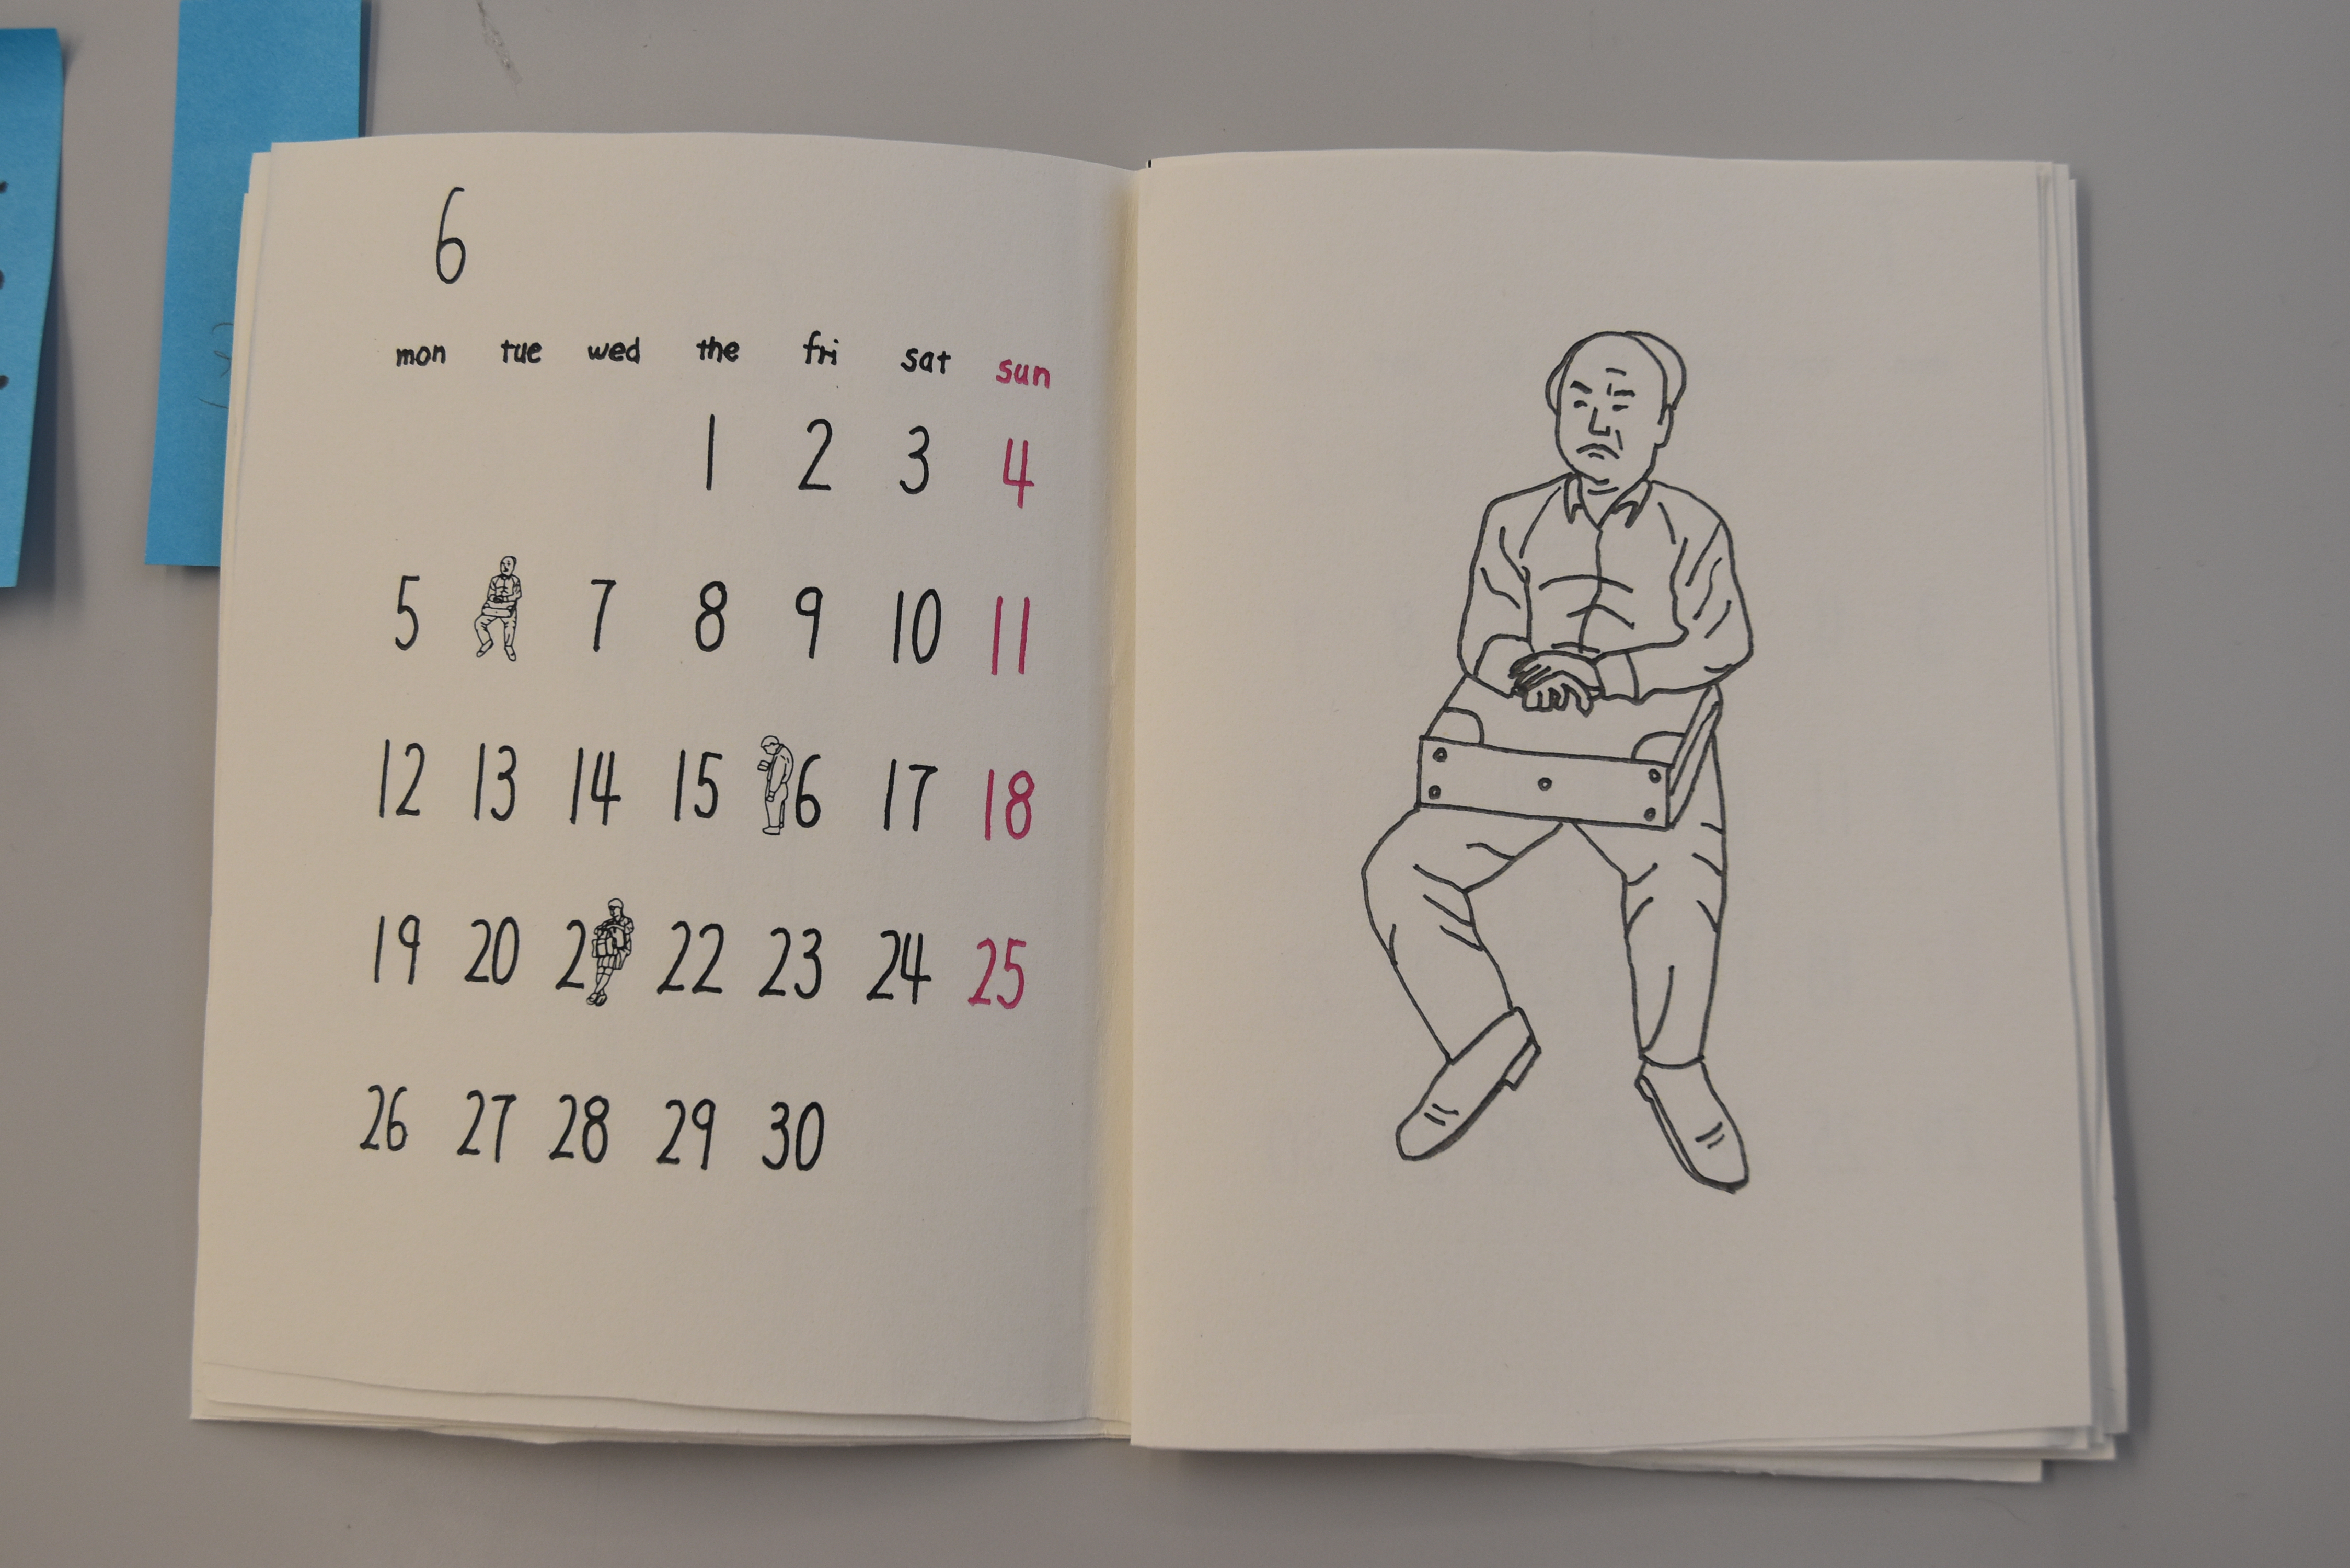 6
mon tue wed the fri sat sun
1 2 3 4
5 7 8 9 10 11
12 13 14 15 6 17 18
19 20 2 22 23 24 25
26 27 28 29 30